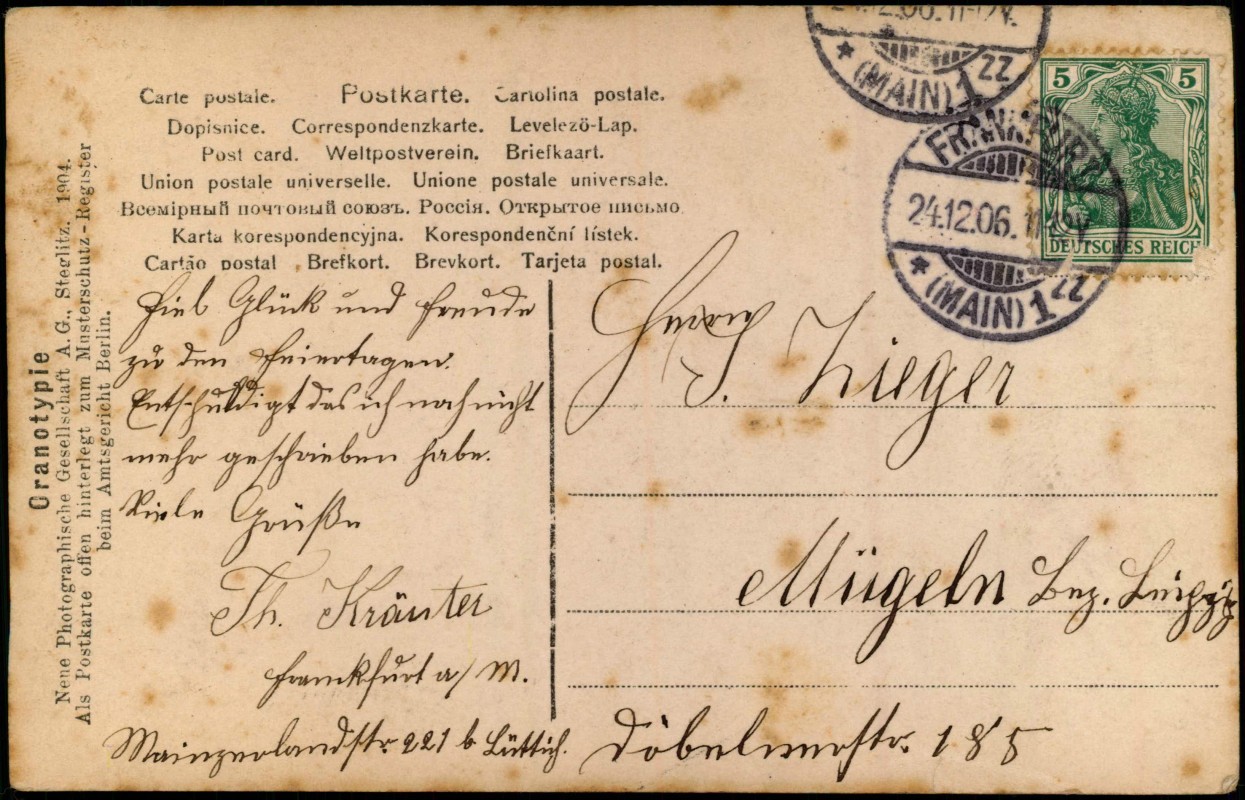 24.12.06. 11-12V.
* (MAIN) 1 ZZ
5 5
DEUTSCHES REICH
FRANKFURT
24.12.06. 11-12V
* (MAIN) 1 ZZ
Carte postale. Postkarte. Cartolina postale.
Dopisnice. Correspondenzkarte. Levelező-Lap.
Post card. Weltpostverein. Briefkaart.
Union postale universelle. Unione postale universale.
Всемірный почтовый союзъ. Россія. Открытое письмо.
Karta korespondencyjna. Korespondenční lístek.
Cartão postal Brefkort. Brevkort. Tarjeta postal.
Oranotypie
Neue Photographische Gesellschaft A. G., Steglitz. 1904.
Als Postkarte offen hinterlegt zum Musterschutz-Register
beim Amtsgericht Berlin.
Viel Glück und Freude
zu den Feiertagen.
Entschuldigt das ich noch nicht
mehr geschrieben habe.
Viele Grüße
Th. Kräuter
Frankfurt a/M.
Mainzerlandstr. 221 b. Lüttich.
Herrn
S. Zieger
Mügeln Bez. Leipzig
Döbelnerstr. 185